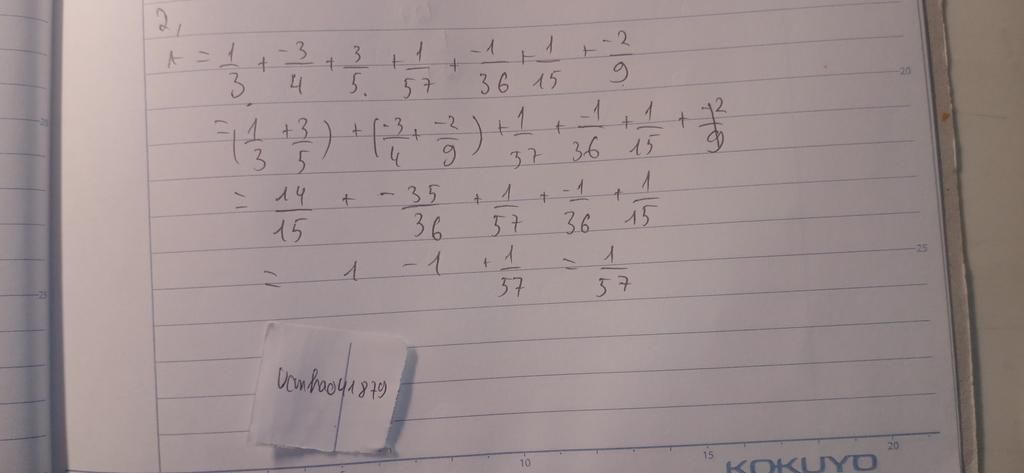 2,
A = 1/3 + -3/4 + 3/5 + 1/57 + -1/36 + 1/15 + -2/9
= (1/3 + 3/5) + (-3/4 + -2/9) + 1/57 + -1/36 + 1/15 +
= 14/15 + -35/36 + 1/57 + -1/36 + 1/15
= 1 - 1 + 1/57 = 1/57
Vanhao41879
20
25
10 15 20
KOKUYO